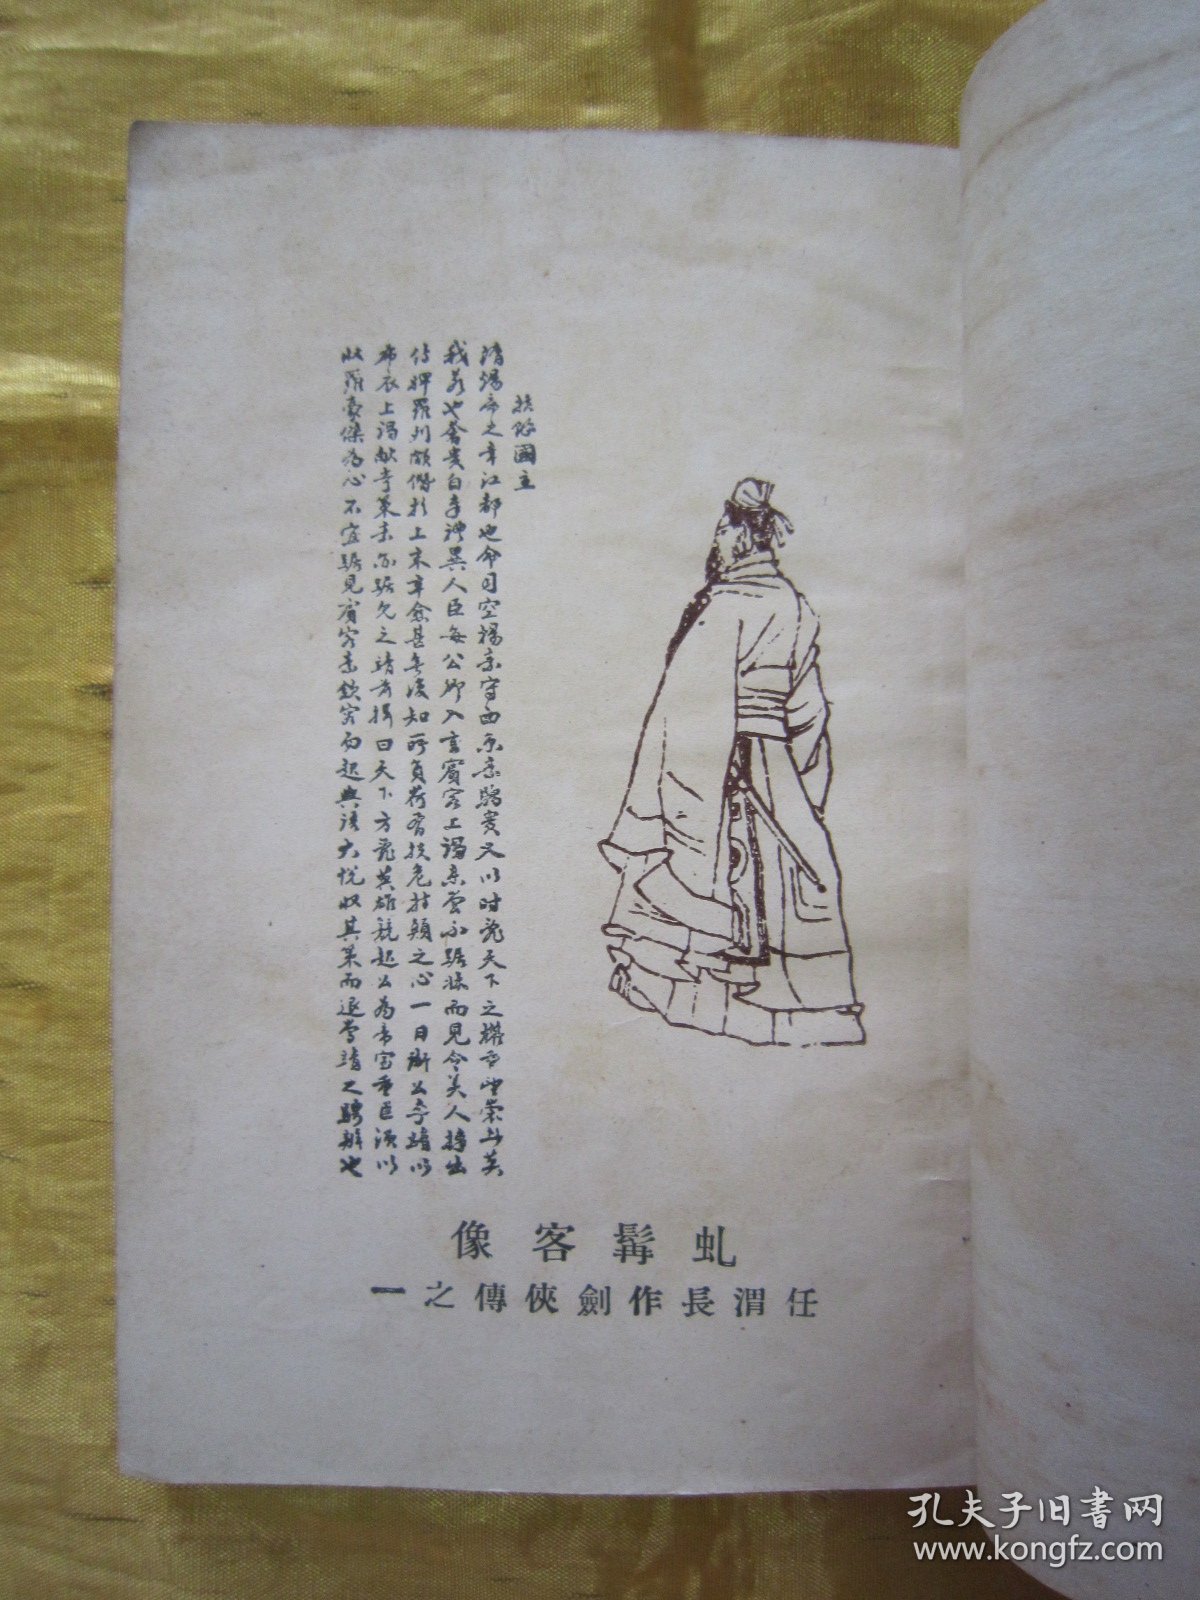 扶餘國主
隋煬帝之幸江都也命司空楊素守西京素驕貴又以時亂天下之權重望崇者莫
我若也奢貴自奉禮異人臣每公卿入言賓客上謁素嘗不踞牀而見令美人捧出
侍婢羅列頗僭於上末年愈甚無復知所負荷有扶危持顛之心一日衛公李靖以
布衣上謁獻奇策素亦踞見之靖前揖曰天下方亂英雄競起公為帝室重臣須以
收羅豪傑為心不宜踞見賓客素斂容而起與語大悅收其策而退當靖之騁辯也
虬髯客像
任渭長作劍俠傳之一
孔夫子旧書网
www.kongfz.com